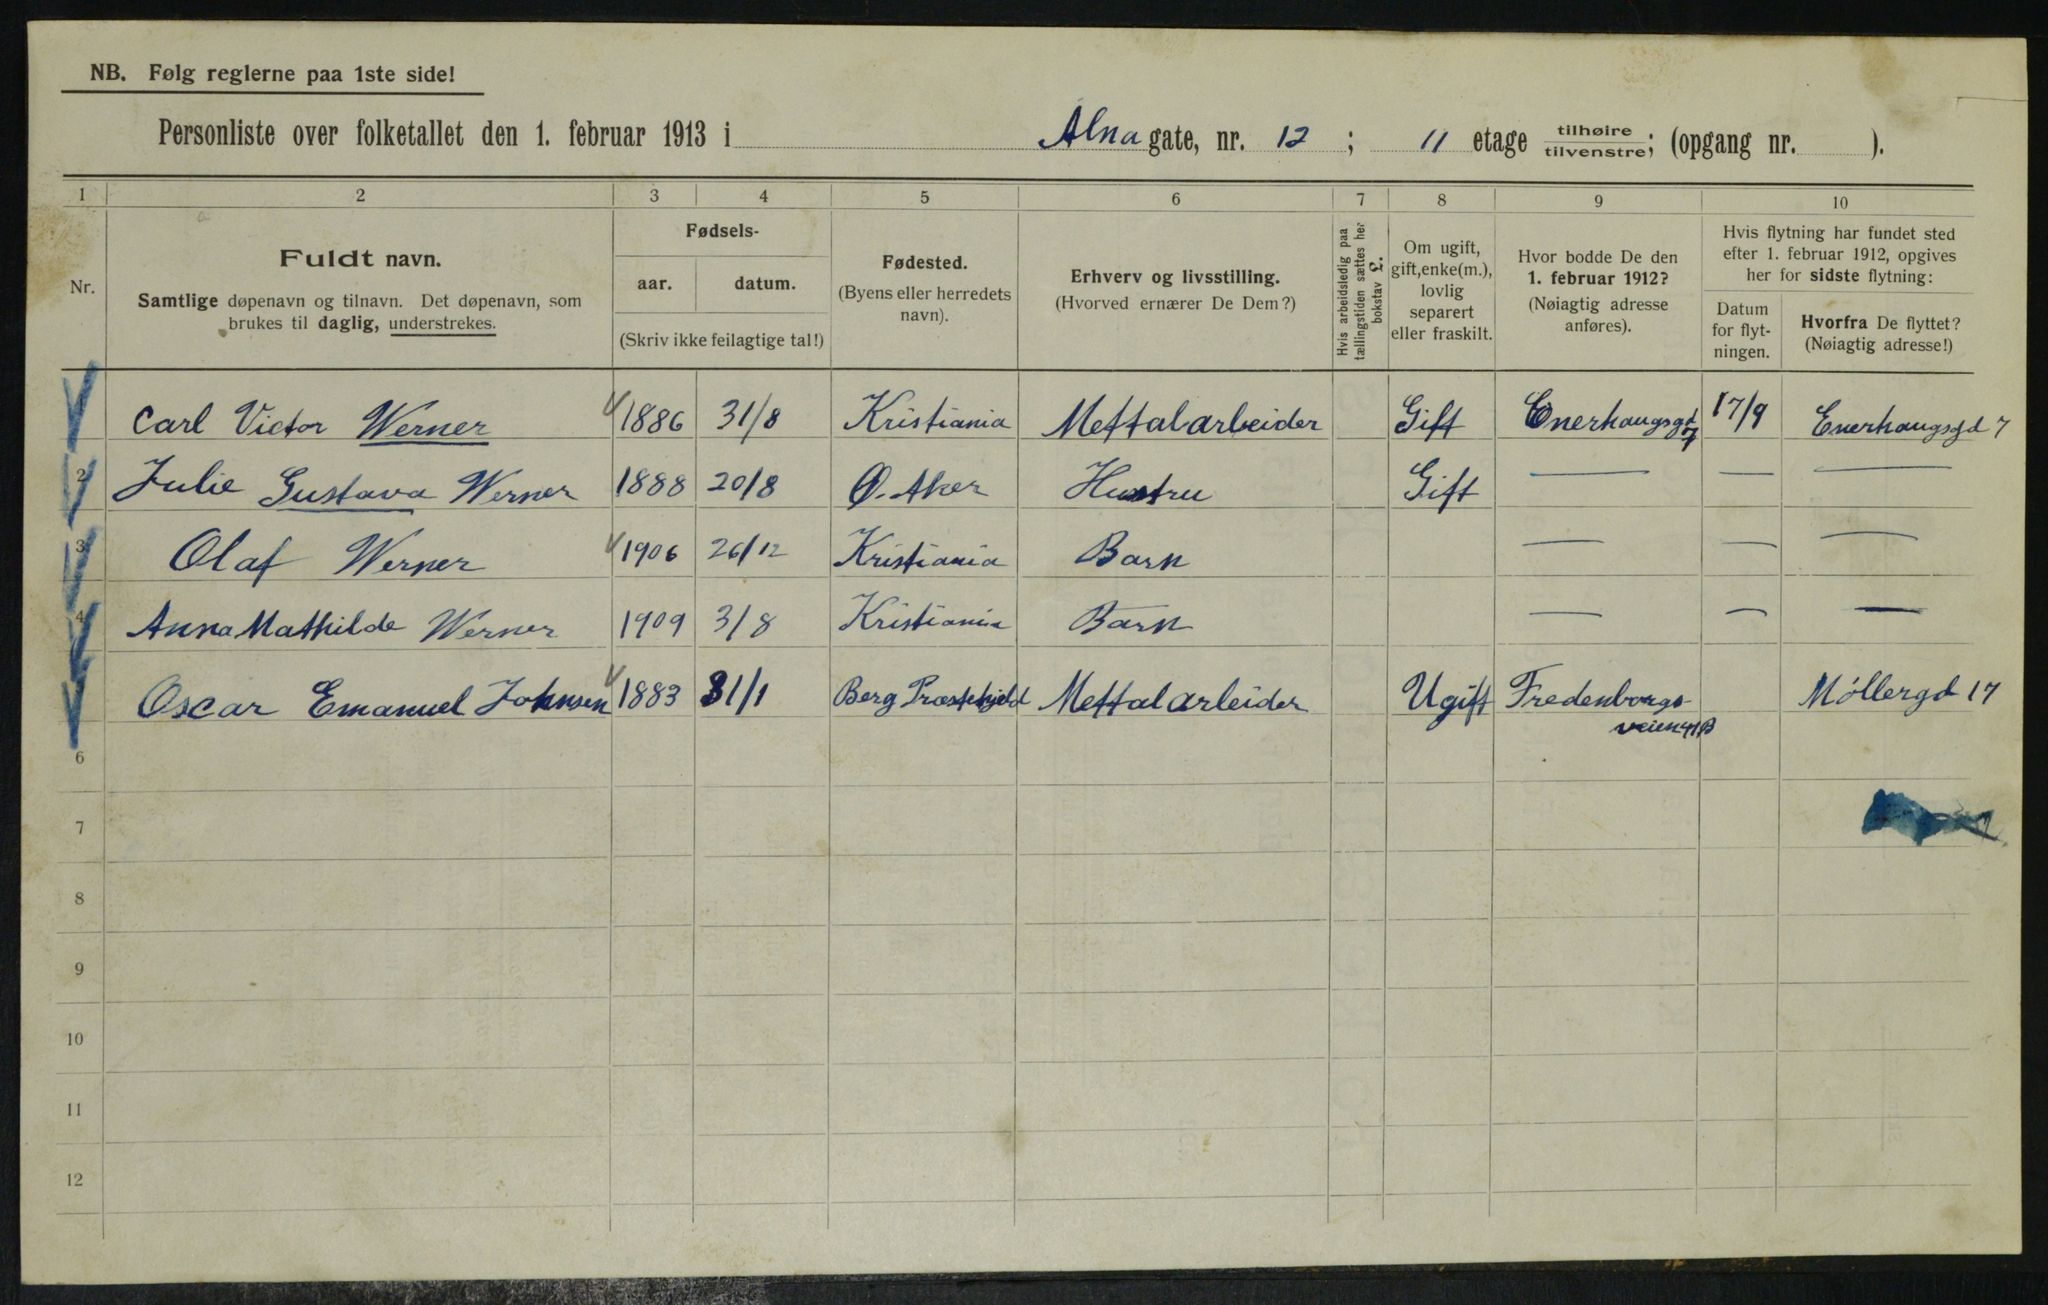 NB. Følg reglerne paa 1ste side!
Personliste over folketallet den 1. februar 1913 i Alna gate, nr. 12 ; 11 etage tilhøire tilvenstre; (opgang nr. ).
1 2 3 4 5 6 7 8 9 10
Nr.
Fuldt navn.
Samtlige døpenavn og tilnavn. Det døpenavn, som
brukes til daglig, understrekes.
Fødsels-
aar. datum.
(Skriv ikke feilagtige tal!)
Fødested.
(Byens eller herredets
navn).
Erhverv og livsstilling.
(Hvorved ernærer De Dem?)
Hvis arbeidsledig paa
tællingstiden sættes her
bokstav L.
Om ugift,
gift,enke(m.),
lovlig
separert
eller fraskilt.
Hvor bodde De den
1. februar 1912?
(Nøiagtig adresse
anføres).
Hvis flytning har fundet sted
efter 1. februar 1912, opgives
her for sidste flytning:
Datum
for flyt-
ningen.
Hvorfra De flyttet?
(Nøiagtig adresse!)
Carl Victor Werner 1886 31/8 Kristiania Mettalarbeider Gift Enerhaugsgd 7 17/9 Enerhaugsgd 7
2 Julie Gustava Werner 1888 20/8 Ø. Aker Hustru Gift — — —
3 Olaf Werner 1906 26/12 Kristiania Barn — — —
4 Anna Mathilde Werner 1909 3/8 Kristiania Barn — — —
Oscar Emanuel Johnsen 1883 31/1 Berg Præstehjeld Mettalarbeider Ugift Fredenborgs- Møllergd 17
veien 41B
6
7
8
9
10
11
12